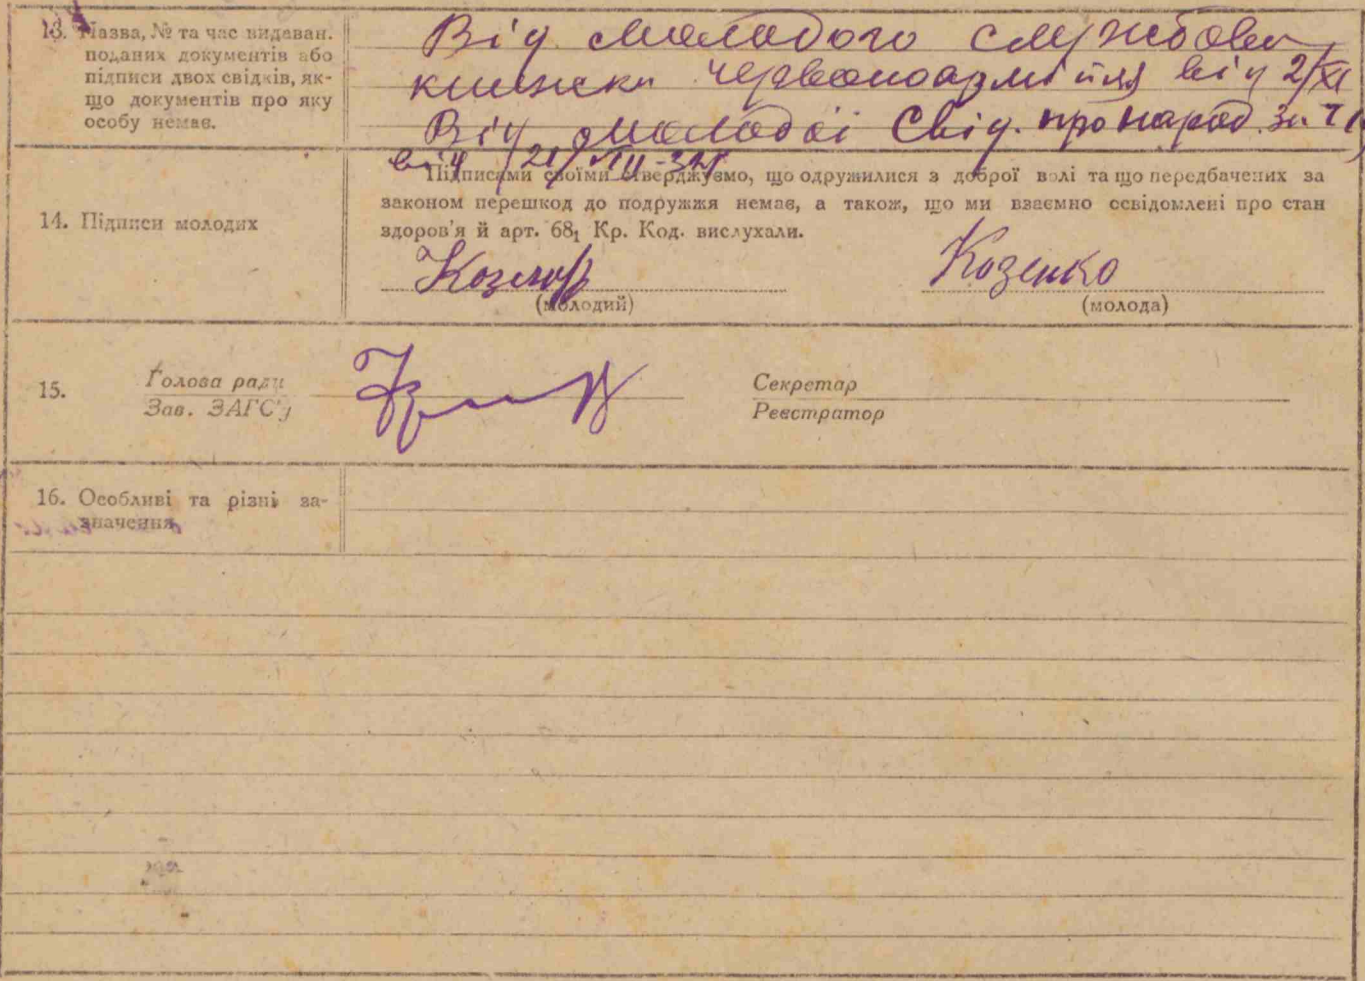 13. Назва, № та час видаван.
поданих документів або
підписи двох свідків, як-
що документів про яку
особу немає.
Від молодого службова
книжка червоноармійця від 2/XI
Від молодої Свід. про народ. за
від 21/
14. Підписи молодих
Підписами своїми стверджуємо, що одружилися з доброї волі та що передбачених за
законом перешкод до подружжя немає, а також, що ми взаємно освідомлені про стан
здоров'я й арт. 68₁ Кр. Код. вислухали.
Козенко
(молодий) (молода)
15. Голова ради Секретар
Зав. ЗАГС'у Реєстратор
16. Особливі та різні за-
значення